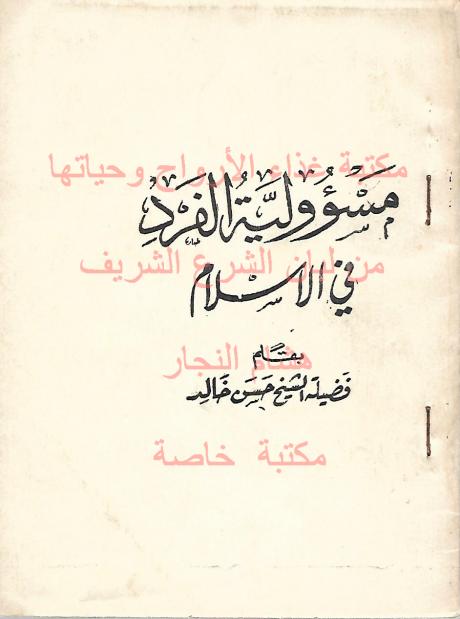 مكتبة غذاء الأرواح وحياتها
مَسْؤُوليَّةُ الفَرَدِ
من لبان الشرع الشريف
في الاسلام
هشام النجار
بقلم
فَضيلة الشيخ حسَن خَالِد
مكتبة خاصة